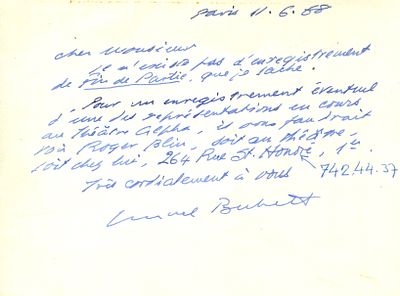 Paris 11.6.68
Cher Monsieur
Il n'existe pas d'enregistrement
de Fin de Partie, que je sache.
Pour un enregistrement éventuel
d'une des représentations en cours
au théâtre Alpha, il vous faudrait
voir Roger Blin, soit au théâtre,
soit chez lui, 264 Rue St. Honoré, 1er.
742.44.37
Très cordialement à vous
Samuel Beckett